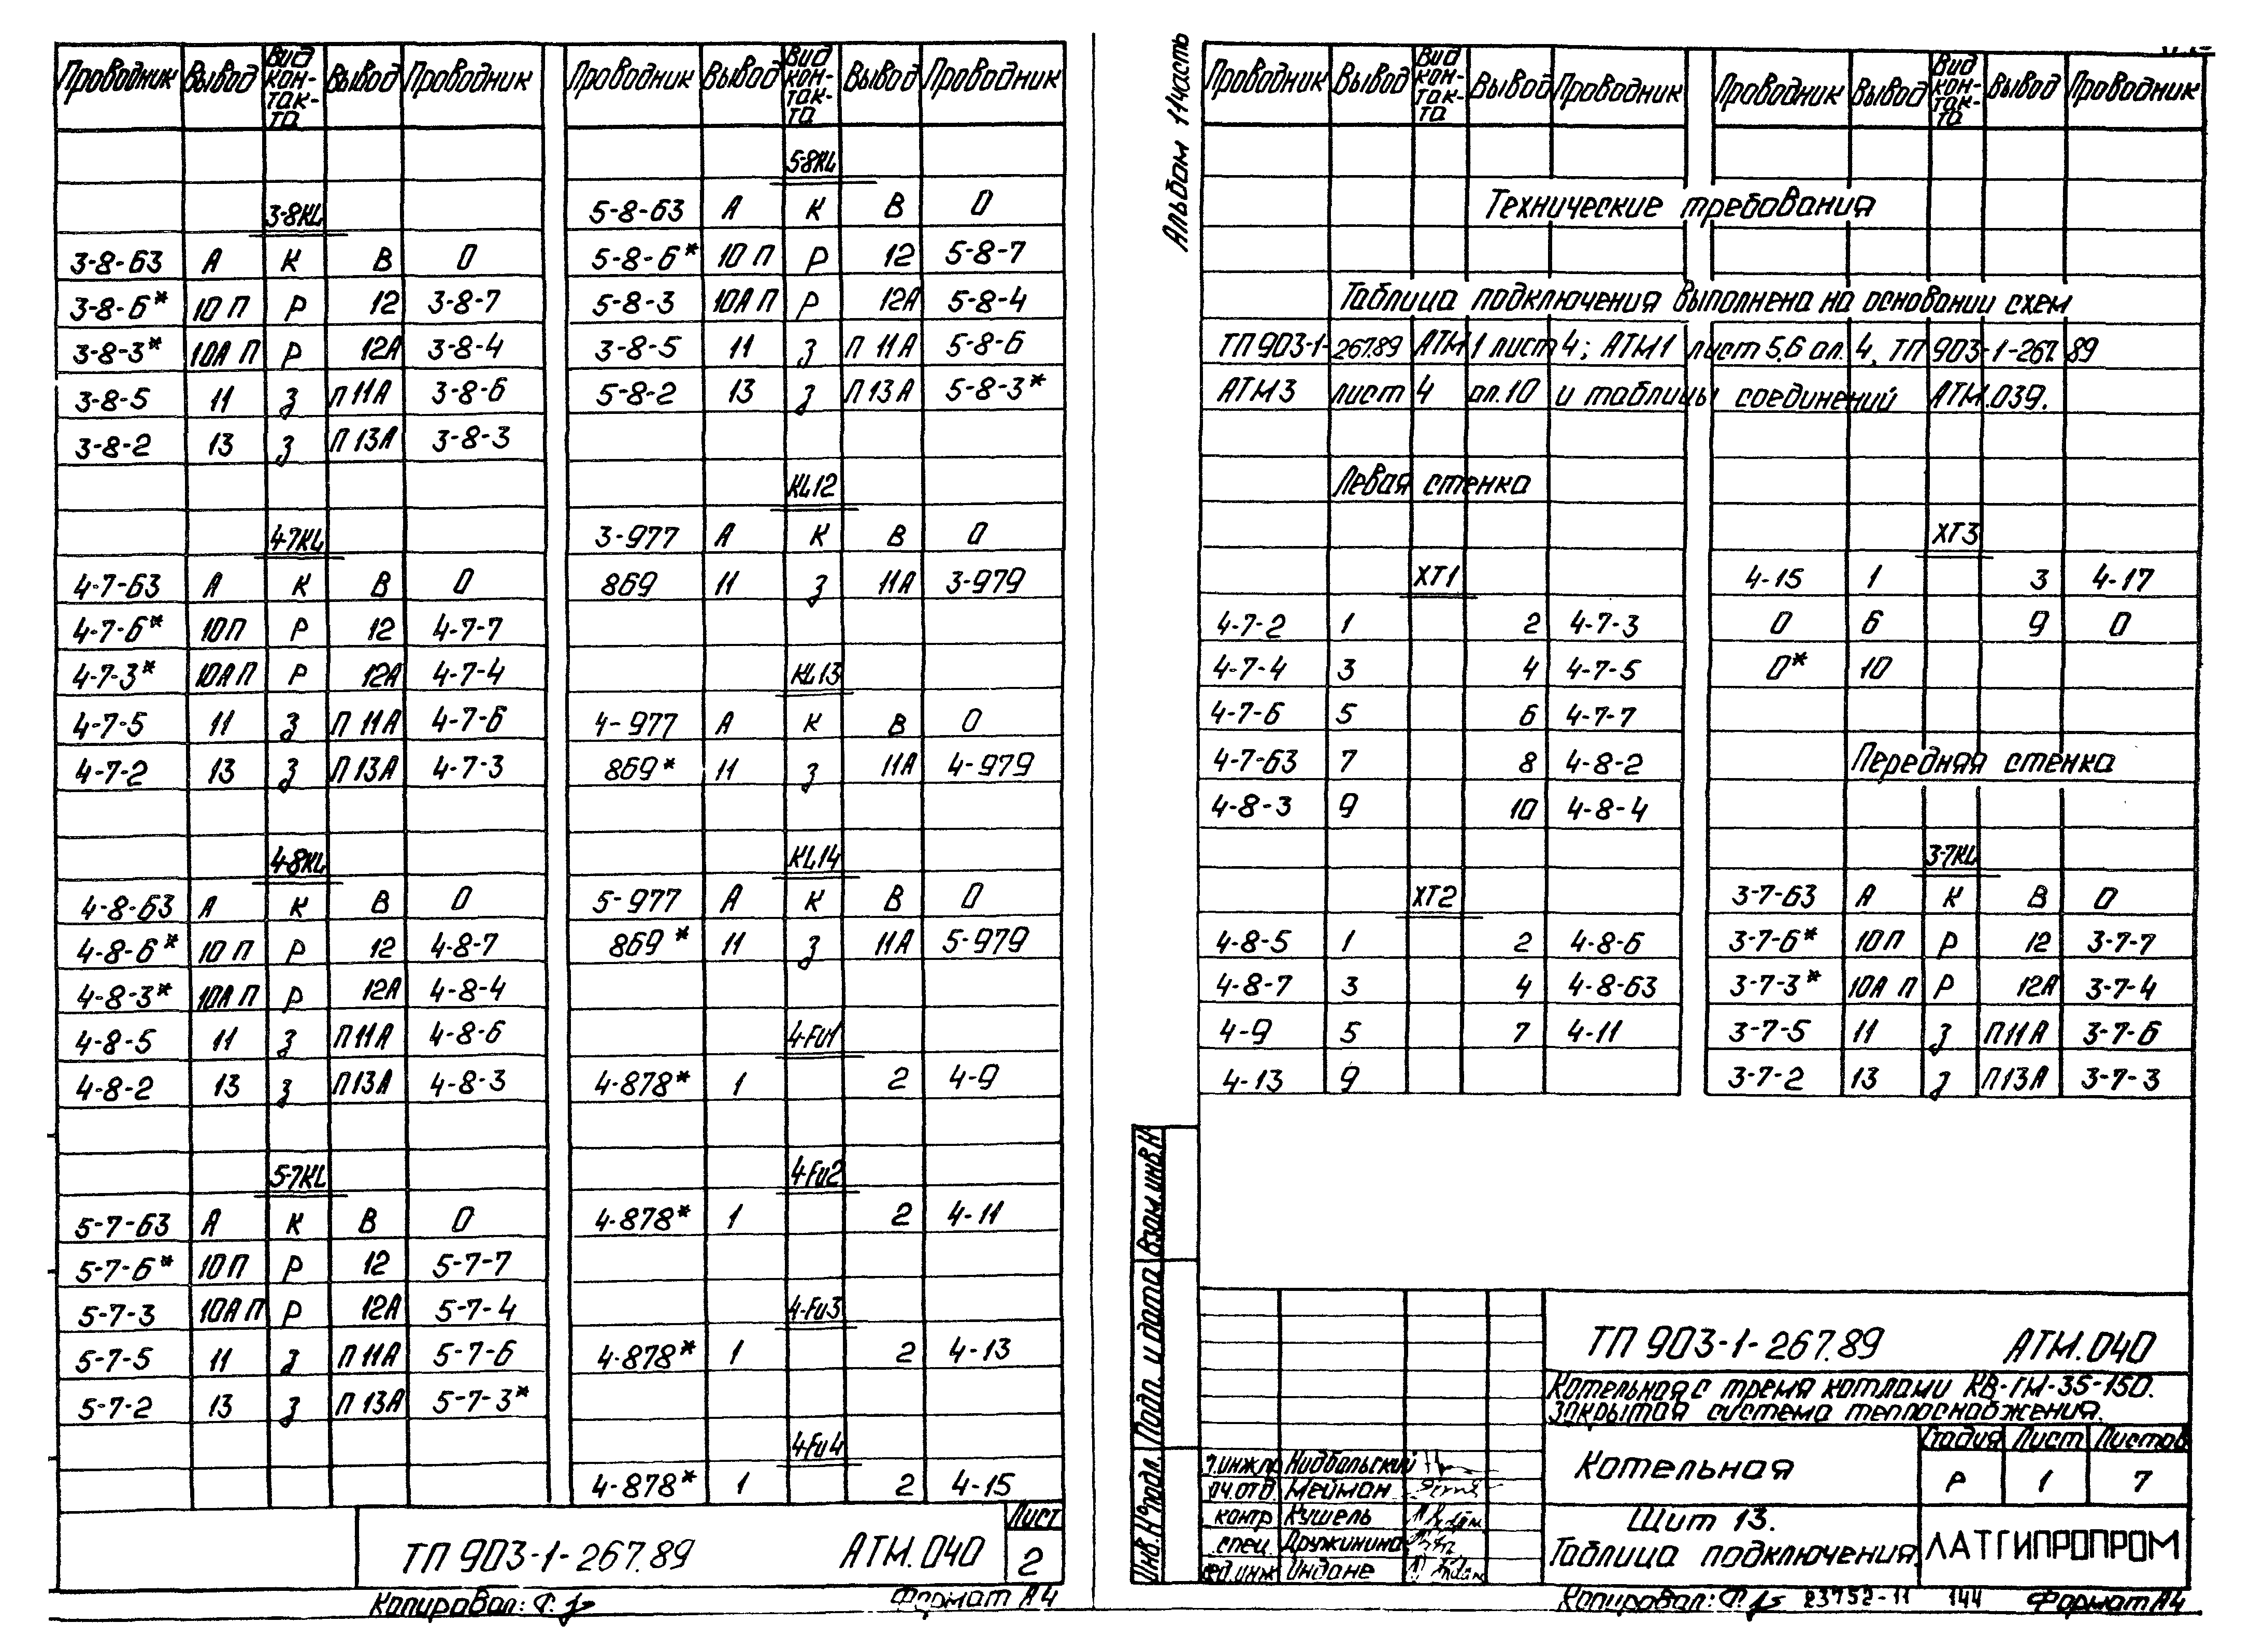 Проводник Вывод Вид кон-так-та Вывод Проводник
3-8KL
3-8-63 А К В 0
3-8-6* 10 П Р 12 3-8-7
3-8-3* 10А П Р 12А 3-8-4
3-8-5 11 З П 11А 3-8-6
3-8-2 13 З П 13А 3-8-3
4-7KL
4-7-63 А К В 0
4-7-6* 10П Р 12 4-7-7
4-7-3* 10А П Р 12А 4-7-4
4-7-5 11 З П 11А 4-7-6
4-7-2 13 З П 13А 4-7-3
4-8KL
4-8-63 А К В 0
4-8-6* 10 П Р 12 4-8-7
4-8-3* 10А П Р 12А 4-8-4
4-8-5 11 З П 11А 4-8-6
4-8-2 13 З П 13А 4-8-3
5-7KL
5-7-63 А К В 0
5-7-6* 10П Р 12 5-7-7
5-7-3 10А П Р 12А 5-7-4
5-7-5 11 З П 11А 5-7-6
5-7-2 13 З П 13А 5-7-3*
Проводник Вывод Вид кон-так-та Вывод Проводник
5-8KL
5-8-63 А К В 0
5-8-6* 10 П Р 12 5-8-7
5-8-3 10А П Р 12А 5-8-4
5-8-5 11 З П 11А 5-8-6
5-8-2 13 З П 13А 5-8-3*
KL12
3-977 А К В 0
869 11 З 11А 3-979
KL13
4-977 А К В 0
869* 11 З 11А 4-979
KL14
5-977 А К В 0
869* 11 З 11А 5-979
4-Fu1
4-878* 1 2 4-9
4-Fu2
4-878* 1 2 4-11
4-Fu3
4-878* 1 2 4-13
4-Fu4
4-878* 1 2 4-15
ТП 903-1-267.89 АТМ.040
Лист
2
Копировал:
Формат А4
Альбом 11 часть
Проводник Вывод Вид кон-так-та Вывод Проводник
Проводник Вывод Вид кон-так-та Вывод Проводник
Технические требования
Таблица подключения выполнена на основании схем
ТП 903-1-267.89 АТМ1 лист 4; АТМ1 лист 5,6 ал. 4, ТП 903-1-267.89
АТМ3 лист 4 ал.10 и таблицы соединений АТМ.039.
Левая стенка
XT1
4-7-2 1 2 4-7-3
4-7-4 3 4 4-7-5
4-7-6 5 6 4-7-7
4-7-63 7 8 4-8-2
4-8-3 9 10 4-8-4
XT2
4-8-5 1 2 4-8-6
4-8-7 3 4 4-8-63
4-9 5 7 4-11
4-13 9
XT3
4-15 1 3 4-17
0 6 9 0
0* 10
Передняя стенка
3-7KL
3-7-63 А К В 0
3-7-6* 10П Р 12 3-7-7
3-7-3* 10А П Р 12А 3-7-4
3-7-5 11 З П11А 3-7-6
3-7-2 13 З П13А 3-7-3
Взам.инв.N
Подп. и дата
Инв.N°подл.
ТП 903-1-267.89 АТМ.040
Котельная с тремя котлами КВ-ГМ-35-150.
Закрытая система теплоснабжения.
Котельная
Стадия Лист Листов
Р 1 7
Щит 13.
Таблица подключения
ЛАТГИПРОПРОМ
Нидбальский
Мейман
контр Кушель
спец. Дружинина
Индане
Копировал: 23752-11 144 Формат А4